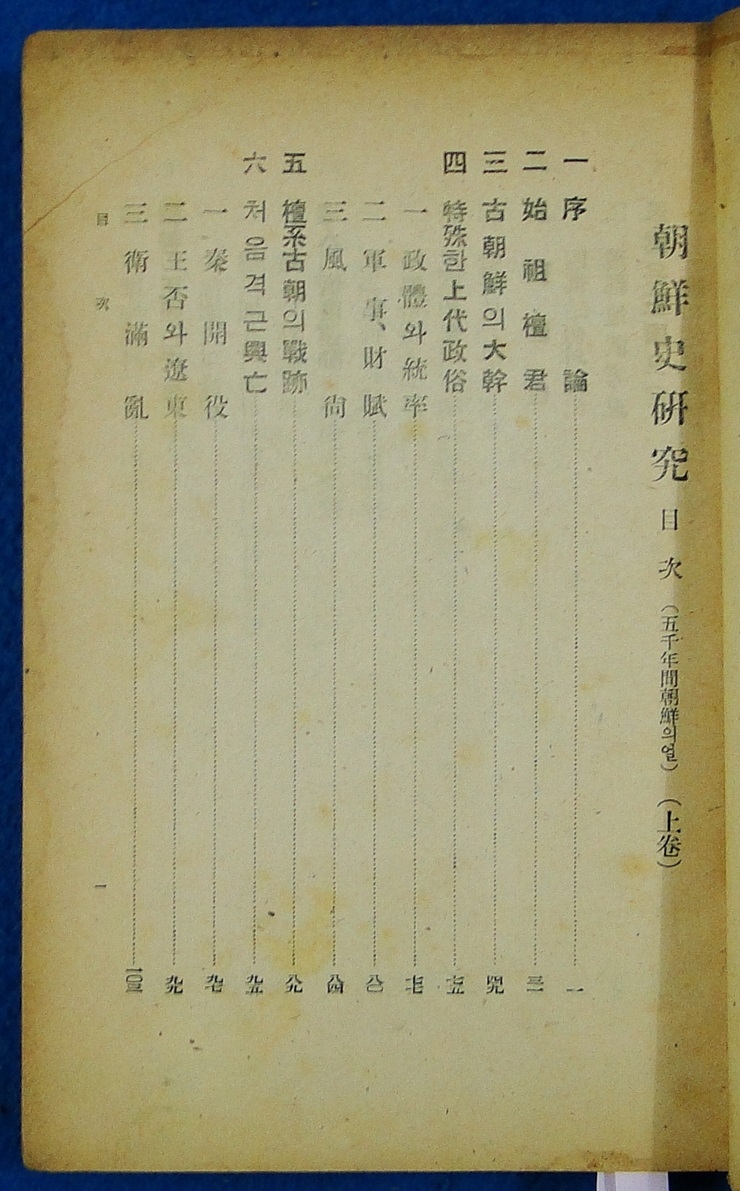 朝鮮史硏究 目次 (五千年間朝鮮의얼) (上卷)
一 序論 一
二 始祖檀君 三一
三 古朝鮮의大幹 四九
四 特殊한上代政俗 七五
一 政體와統率 七七
二 軍事、財賦 八〇
三 風尙 八四
五 檀系古朝의戰跡 八九
六 처음격근興亡 九五
一 秦開役 九七
二 王否와遼東 九九
三 衛滿亂 一〇三
目次 一